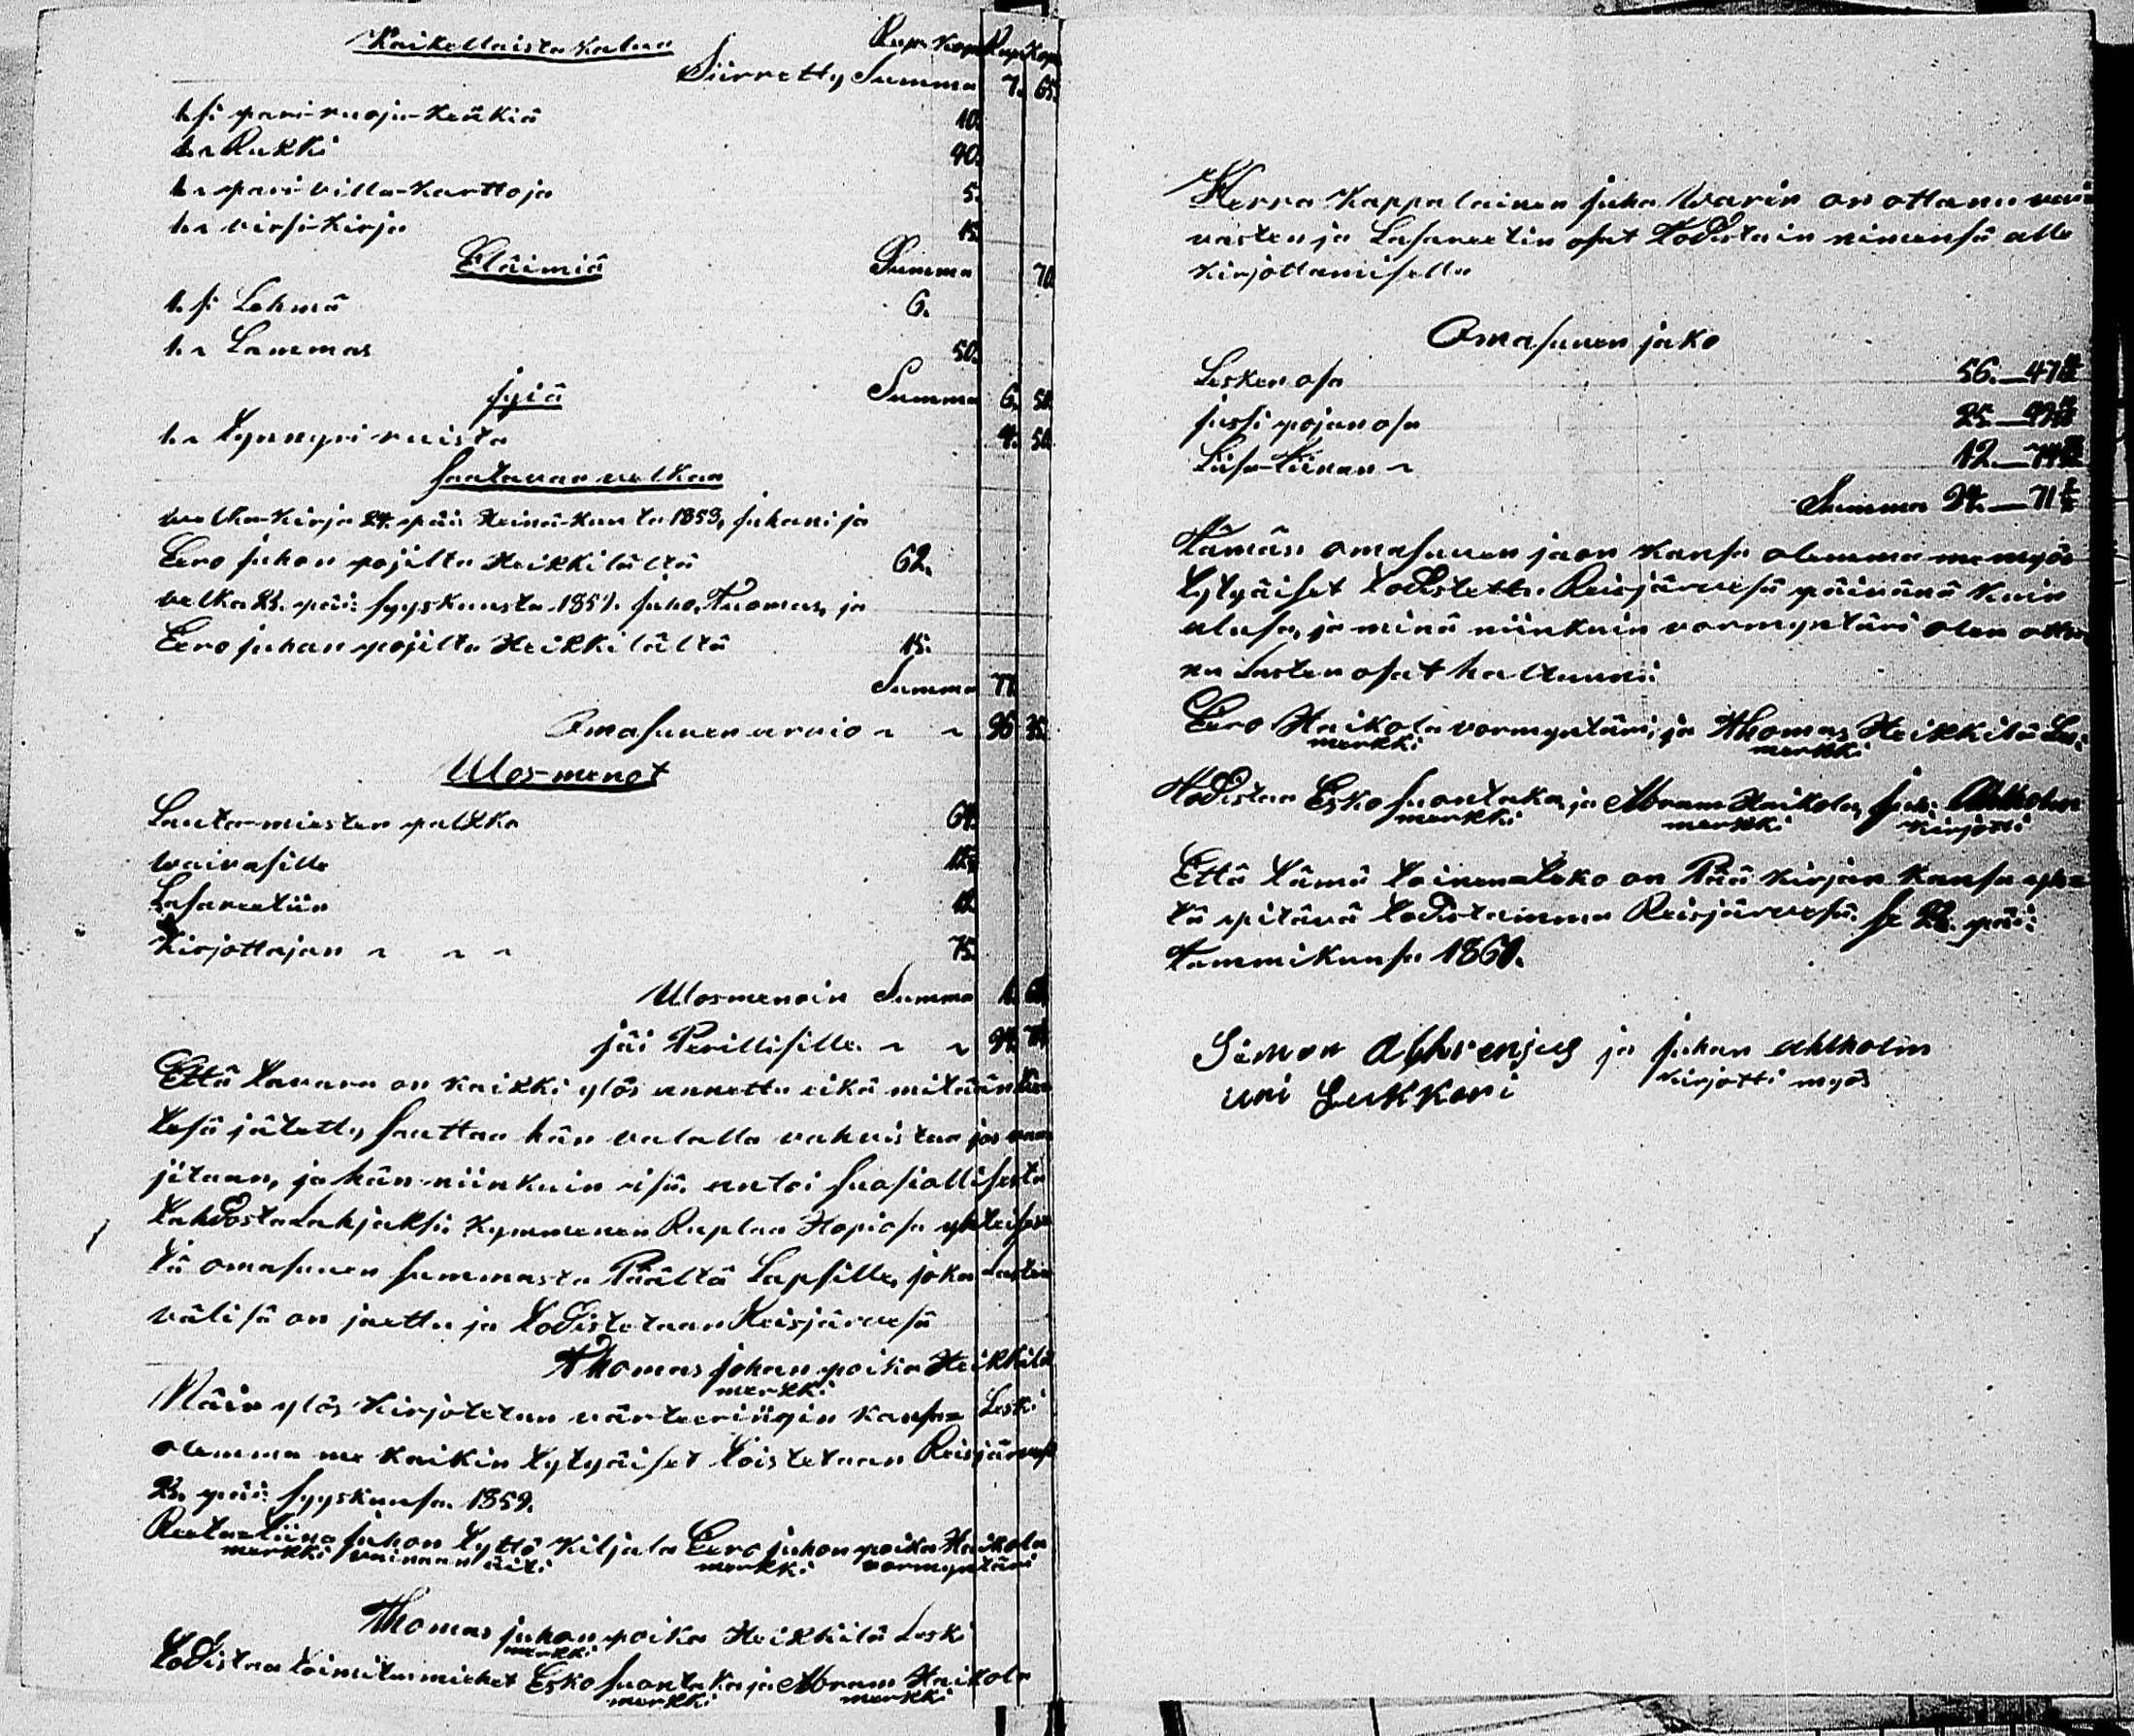 Kaikellaista kalua Rup. Kop. Rup. Kop.
Siirretty Summa 7. 65.
1. si pari ruoju-keükiä 10.
1. " Rukki 40.
1. " pari villa-karttoja 5.
1. " virsi-kirja 15.
Eläimiä Summa 70.
1. si Lehmä 6.
1. " Lammas 50.
jyiä Summa 6. 50.
1. " tynnyri ruista 4. 50.
saatavan velkaa
velka-kirja 24. päi: Heinä-kuuta 1853, juhani ja
Eero juhan pojilta Heikkilältä 62.
velka 23. päi: syyskuusta 1857. juho, Tuomas, ja
Eero juhan pojilta Heikkilältä 15.
Summa 77.
Omasuuen arvio " " 96 35.
Ulos-menot
Lautamiesten palkka 64.
waivasille
Lasareetiin
Kirjottajan " " " 75.
Ulosmenoin Summa 1.
jäi Perillisille " " 94.
Että tavara on kaikki ylös annettu eikä mitään
tesä jätetty, saattaa hän valalla vahvistaa jos
jitaan, ja hän niinkuin isä, antoi suasiallisesta
tahdosta Lahjaksi kymmenen Ruplaa Hopiasa
tä omasuuen summasta Päältä Lapsille, joka Lasten
välisä on jaettu ja todistetaan Reisjärvesä
Thomas johan poika Heikkilä
merkki
Näin ylös kirjotetun värteeringin kansa Leski
olemma me kaikin tytyäiset toistetaan Reisjärvesä
23. päi: syyskuusa. 1859.
Reeta-Liina juhon tyttö Kiljala Eero juhon poika Haikola
merkki vainaan äiti merkki vormyntäri
Thomas juhon poika Heikkilä Leski
merkki
todistaa toimitusmiehet Esko suontaka ja Abram Haikola
merkki merkki
Herra Kappalainen juho Warin on ottanu vai-
vasten ja Lasareetin osat todistain nimensä alle
kirjottamisella
Omasuuen jako
Lesken osa 56.—47
jussi pojan osa 25.—49
Liisa-Liinan " 12.—74
Summa 94.—71
Tämän omasuuen jaon kansa olemma me myös
tytyäiset todistettu Reisjärvesä päivänä kuin
alusa, ja minä niinkuin vormyntäri olen otta
nu Lasten osat haltuuni
Eero Haikola vormyntäri, ja Thomas Heikkilä
merkki merkki
Todistaa Esko suontaka, ja Abram Haikola, juh: Ahlholm
merkki merkki kirjotti
Että tämä toinen-teko on Pää kirjan kansa yh-
tä pitävä todistamma Reisjärvesä. se 22. päi:
Tammikuusa 1861.
Simon Ahrenjus ja juhan Ahlholm
uni Lukkari kirjotti myös